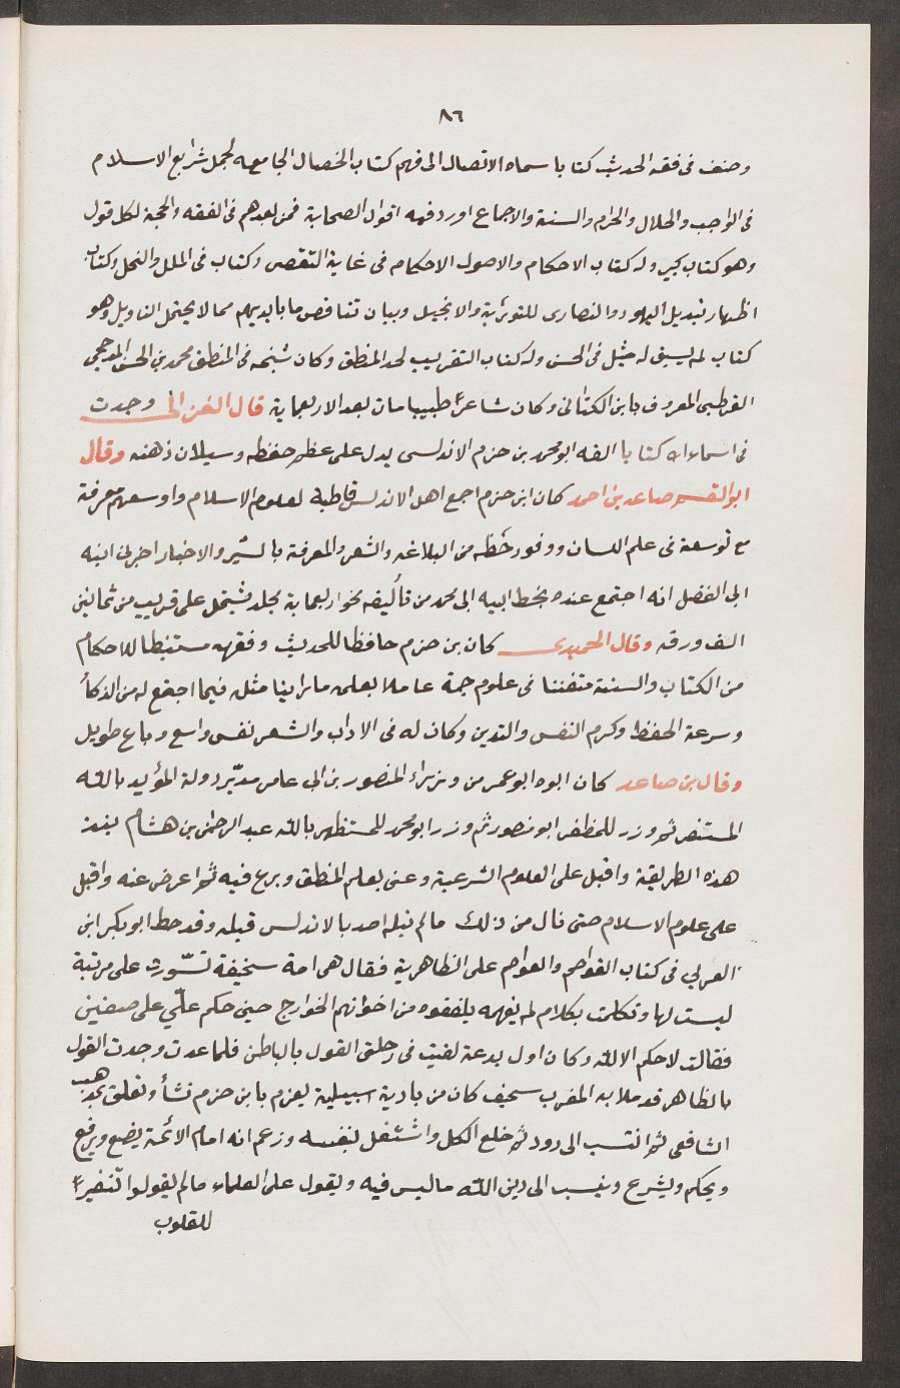 ٨٦
وصنف فى فقه الحديث كتابا سماه الاتصال الى فهم كتاب الخصال الجامعه لجمل شرائع الاسلام
فى الواجب والحلال والحرام والسنة والاجماع اورد فيه اقوال الصحابة فمن بعدهم فى الفقه والحجة لكل قول
وهو كتاب كبير وله كتاب الاحكام والاصول الاحكام فى غاية التقصى وكتاب فى الملل والنحل وكتاب
اظهار تبديل اليهود والنصارى للتورية والانجيل وبيان تناقض ما بايديهم مما لا يحتمل التاويل وهو
كتاب لم يسبق له مثل فى الحسن وله كتاب التقريب لحد المنطق وكان شيخه فى المنطق محمد بن الحسن المذحجى
القرطبى المعروف بابن الكتانى وكان شاعرا طبيبا مات بعد الاربعماية قال الغزالى وجدت
فى اسماء الله كتابا الفه ابو محمد بن حزم الاندلسى يدل على عظم حفظه وسيلان ذهنه وقال
ابو القسم صاعد بن احمد كان ابن حزم اجمع اهل الاندلس قاطبة لعلوم الاسلام واوسعهم معرفة
مع توسعة فى علم اللسان ووفور حظه من البلاغة والشعر والمعرفة بالسير والاخبار اخبرنى ابنه
ابى الفضل انه اجتمع عنده بخط ابيه ابى محمد من تأليفه نحو اربعماية مجلد يشتمل على قريب من ثمانين
الف ورقه وقال الحميدى كان بن حزم حافظا للحديث وفقهه مستنبطا للاحكام
من الكتاب والسنة متفننا فى علوم جمة عاملا بعلمه ما راينا مثله فيما اجتمع له من الذكأ
وسرعة الحفظ وكرم النفس والتدين وكان له فى الاداب والشعر نفس واسع وباع طويل
وقال بن صاعد كان ابوه ابو عمر من وزراء المنصور بن ابى عامر مدبّر دولة المؤيد بالله
المستنصر ثم وزر للمظفر ابو منصور ثم وزر ابو محمد للمستظهر بالله عبد الرحمن بن هشام بنبذ
هذه الطريقة واقبل على العلوم الشرعية وعنى بعلم المنطق وبرع فيه ثم اعرض عنه واقبل
على علوم الاسلام حتى نال من ذلك ما لم ينله احد بالاندلس قبله وقد حط ابو بكر ابن
العربى فى كتاب القواصم والعواصم على الظاهرية فقال هى امة سخيفة تسّورت على مرتبة
ليست لها وتكلمت بكلام لم يفهمه يلقفوه من اخوانهم الخوارج حين حكم علّي على صفين
فقالت لا حكم الا لله وكان اول بدعة لقيت فى رحلتى القول بالباطن فلما عدت وجدت القول
بالظاهر قد ملا به المغرب سخيف كان من بادية اسبيلية يعزم بابن حزم نشأ وتعلق بمذهب
الشافعى ثم انتسب الى داود ثم خلع الكل واشتغل بنفسه وزعم انه امام الائمة يضع ويرفع
ويحكم ويشرع وينسب الى دين الله ما ليس فيه ويقول على العلماء ما لم يقولوا تنفيرا
للقلوب